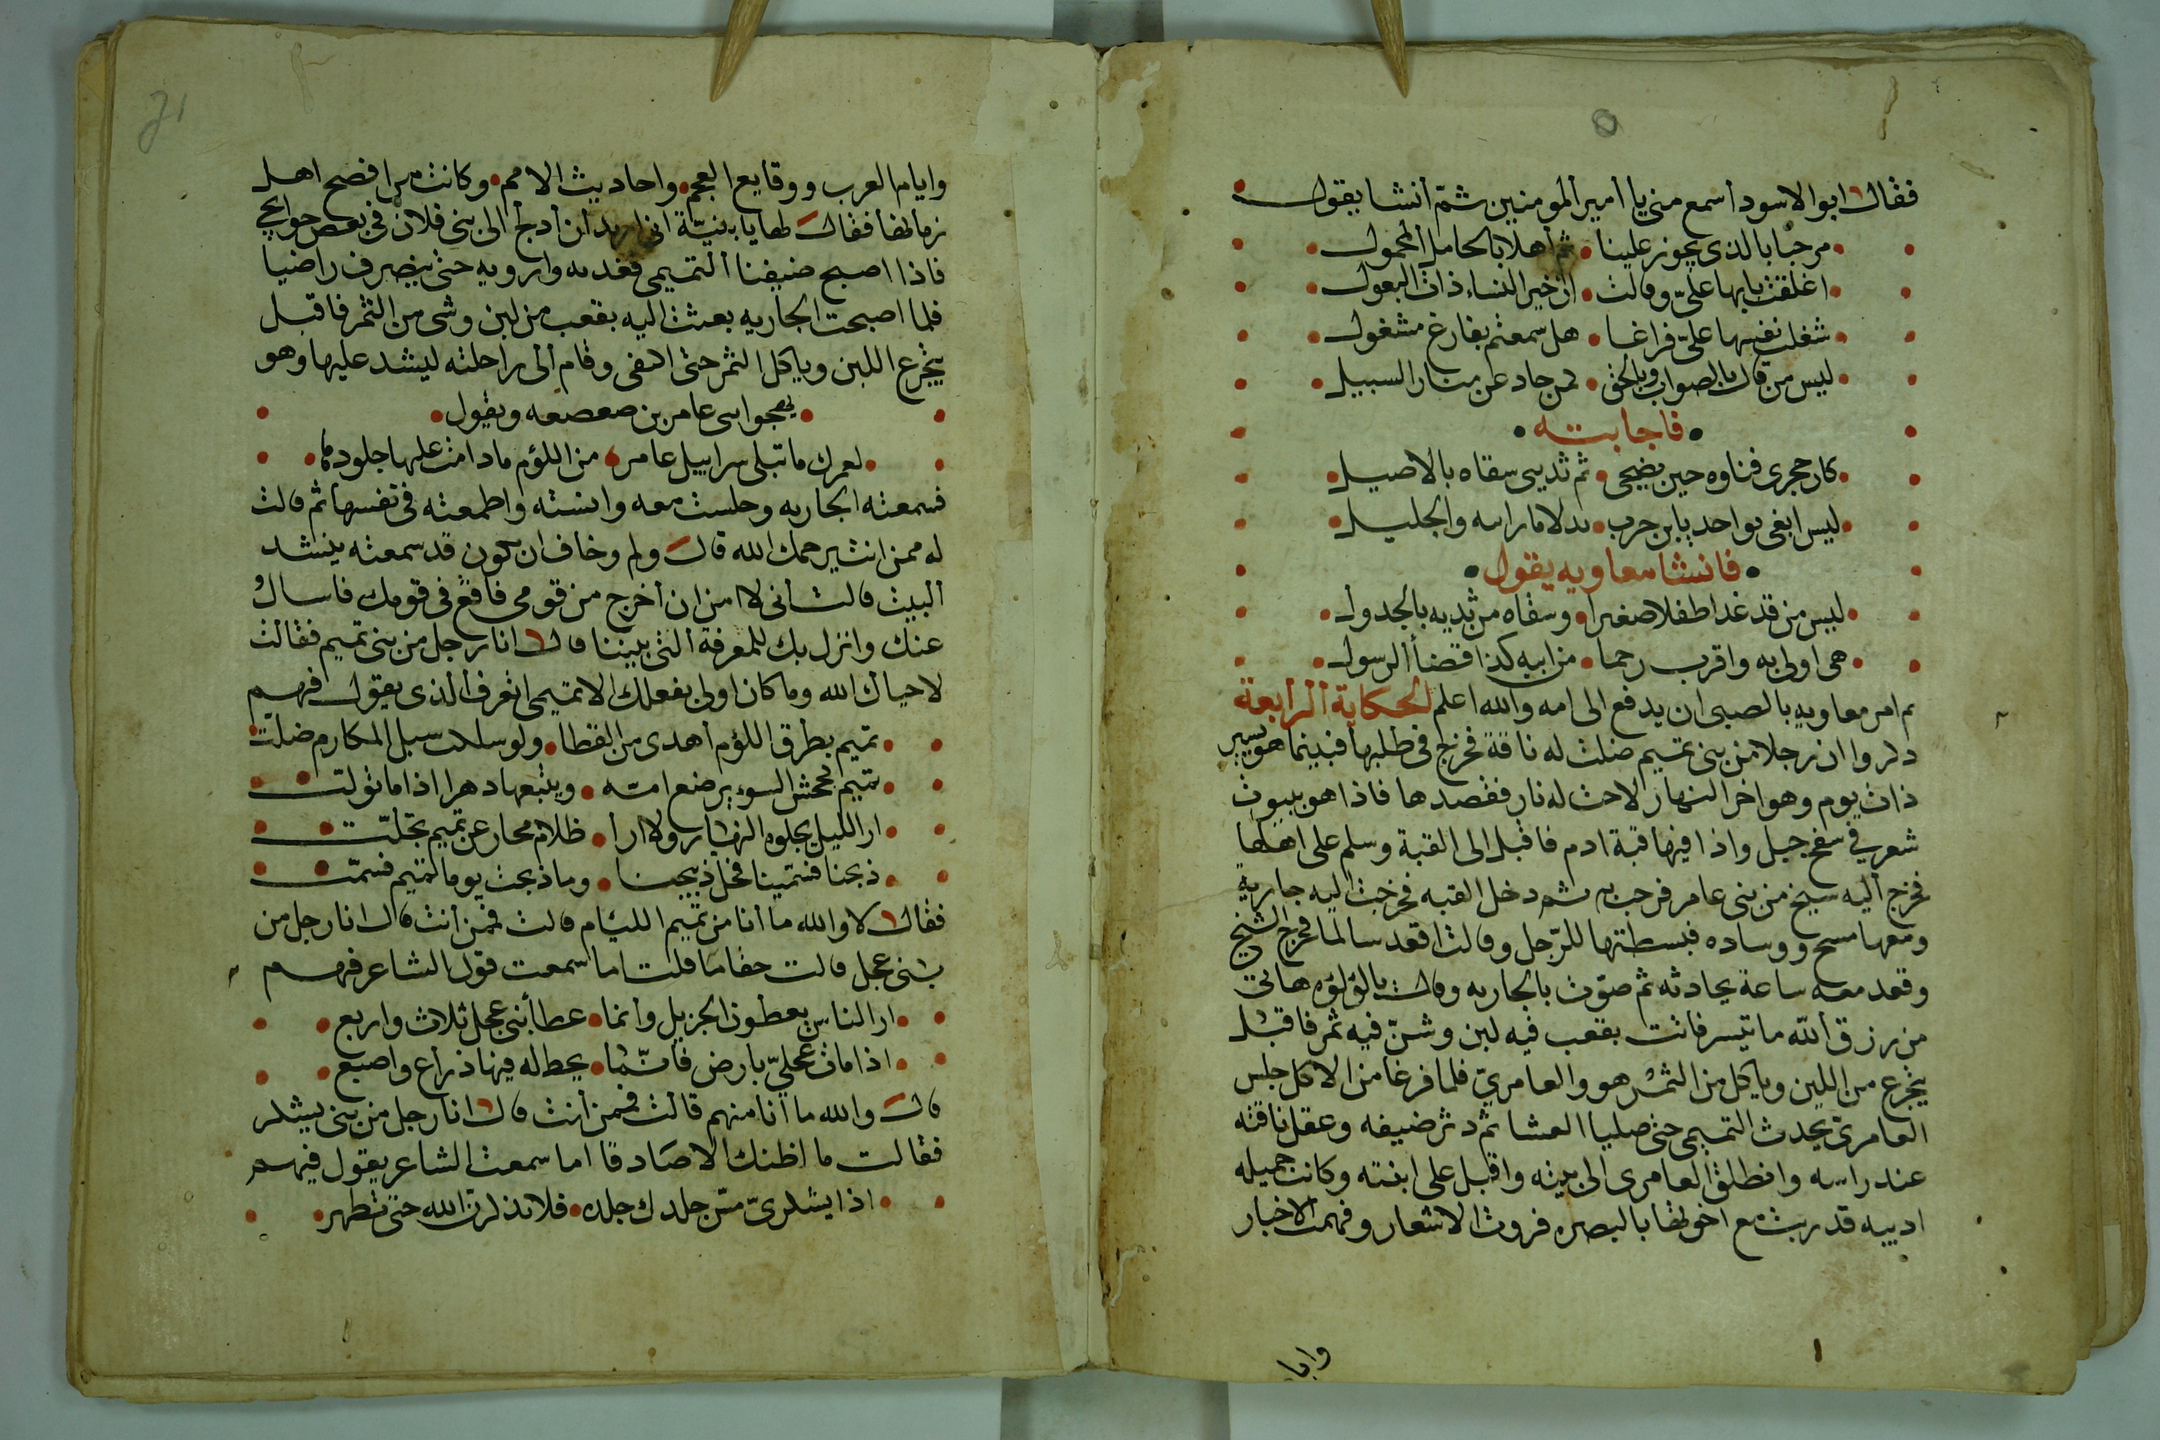 فقال ابو الاسود أسمع مني يا أمير المومنين ثمّ أنشا يقول
مرحبا بالذي يجوز علينا • ثم أهلا بالحامل المحمول
اغلقت بابها عليّ وقالت • ان خير النساء ذات البعول
شغلت نفسها عليّ فراغا • هل سمعتم بفارغ مشغول
ليس من قال بالصواب وبالحق • كمن جاد عن منار السبيل
• فاجابته •
كان حجري فناوه حين يضحي • ثم ثديي سقاه بالاصيل
ليس ابغي بواحد يابن حرب • بدلا ما راىه والجليل
• فانشا معاويه يقول •
ليس من قد غدا طفلا صغيرا • وسقاه من ثديه بالجدول
هي اولى به واقرب رحما • من ابيه كذا قضا الرسول
ثم امر معاويه بالصبي ان يدفع الى امه والله اعلم الحكاية الرابعة
ذكروا ان رجلا من بني تميم ضلت له ناقة فخرج في طلبها فبينما هو يسير
ذات يوم وهو اخر النهار لاحت له نار فقصدها فاذا هو ببيوت
شعر في سفح جبل واذا فيها قبة ادم فاقبل الى القبة وسلم على اهلها
فخرج اليه شيخ من بني عامر فرحب به ثم دخل القبه فخرجت اليه جارية
ومعها مسح ووساده فبسطتها للرّجل وقالت اقعد سالما فخرج الشيخ
وقعد معه ساعة يحادثه ثم صوّت بالجاريه وقال يا لؤلؤه هاتي
من رزق الله ما تيسر فاتت بقعب فيه لبن وشنّ فيه تمر فاقبل
يتجرع من اللبن وياكل من التمر هو والعامريّ فلما فرغا من الاكل جلس
العامريّ يحدث التميمي حتى صليا العشا ثم دثر ضيفه وعقل ناقته
عند راسه وانطلق العامري الى بيته واقبل على ابنته وكانت جميله
اديبه قد ربت مع اخو لها بالبصره فروت الاشعار وفهمت الاخبار
وايا
وايام العرب ووقايع العجم • واحاديث الامم • وكانت من افصح اهل
زمانها فقال لها يا بنيّة اني اريد أن أدلج الى بني فلان في بعض حوايجي
فاذا اصبح ضيفنا التميمي فغديه وارويه حتى ينصرف راضيا
فلما اصبحت الجاريه بعثت اليه بقعب من لبن وشي من التمر فاقبل
يتجرع اللبن وياكل التمر حتى اكتفى وقام الى راحلته ليشد عليها وهو
• يهجوا بني عامر بن صعصعه ويقول •
لعمرك ما تبلى سرابيل عامر • من اللؤم ما دامت عليها جلودها
فسمعته الجاريه وجلست معه وانسته واطمعته في نفسها ثم قالت
له ممن انت يرحمك الله قال ولم وخاف ان يكون قد سمعته ينشد
البيت قالت أني لا امن ان أخرج من قومي فاقع في قومك فاسال
عنك وانزل بك للمعرفة التي بيننا قال انا رجل من بني تميم فقالت
لا حياك الله وما كان اولى بفعلك الا تميمي اتعرف الذي يقول فيهم
تميم بطرق اللؤم أهدى من القطا • ولو سلكت سبل المكارم ضلت
تميم كجحش السوء يرضع امّه • ويتبعها دهرا اذا ما تولت
ارا الليل يجلوه النهار ولا ارا • ظلام مخاز عن تميم تجلّت
ذبحنا فسمّينا فحل ذبيحنا • وما ذبحت يوما تميم فسمّت
فقال لا والله ما أنا من تميم الليام قالت فممن أنت قال انا رجل من
بني عجل قالت حقا ما قلت اما سمعت قول الشاعر فيهم
ارا الناس يعطون الجزيل وانما • عطا بني عجل ثلاث واربع
اذا مات عجليّ بارض فانّما • يخط له فيها ذراع واصبع
قال والله ما أنا منهم قالت فممن أنت قال انا رجل من بني يشكر
فقالت ما اظنك الا صادقا اما سمعت الشاعر يقول فيهم
اذا يشكريّ مسّ جلدك جلده • فلا تذكرن الله حتى تطهر